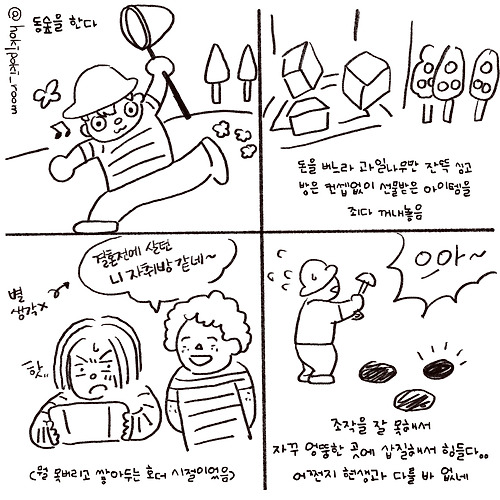 @hokipoki_room
동숲을 한다
돈을 버느라 과일나무만 잔뜩 심고
방은 컨셉없이 선물받은 아이템을
죄다 꺼내놓음
결혼전에 살던
니 자취방 같네~
별
생각X
핫..
(뭘 못버리고 쌓아두는 호더 시절이었음)
으아~
조작을 잘 못해서
자꾸 엉뚱한 곳에 삽질해서 힘들다..
어쩐지 현생과 다를 바 없네